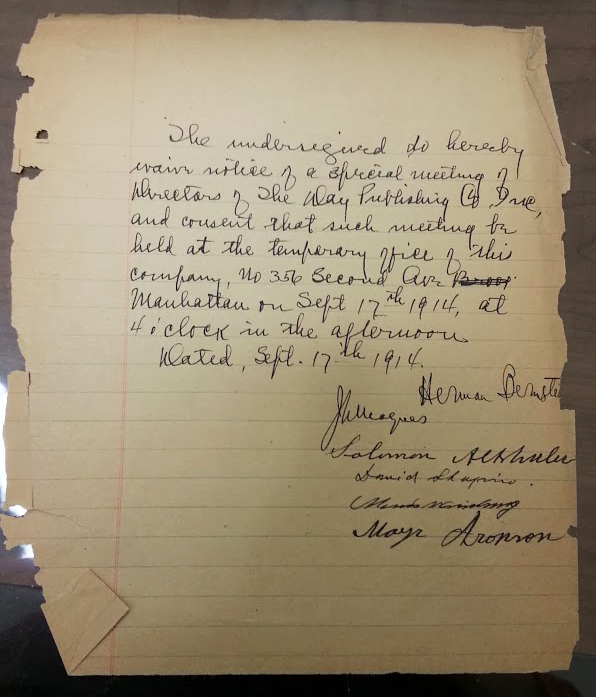 The undersigned do hereby
waive notice of a special meeting of
Directors of The Day Publishing Co, Inc,
and consent that such meeting be
held at the temporary office of this
company, No 356 Second Ave
Manhattan on Sept 17th 1914, at
4 o'clock in the afternoon
Dated, Sept. 17th 1914.
Herman Bernste
Solomon Altshuler
David Shapiro.
Aronson